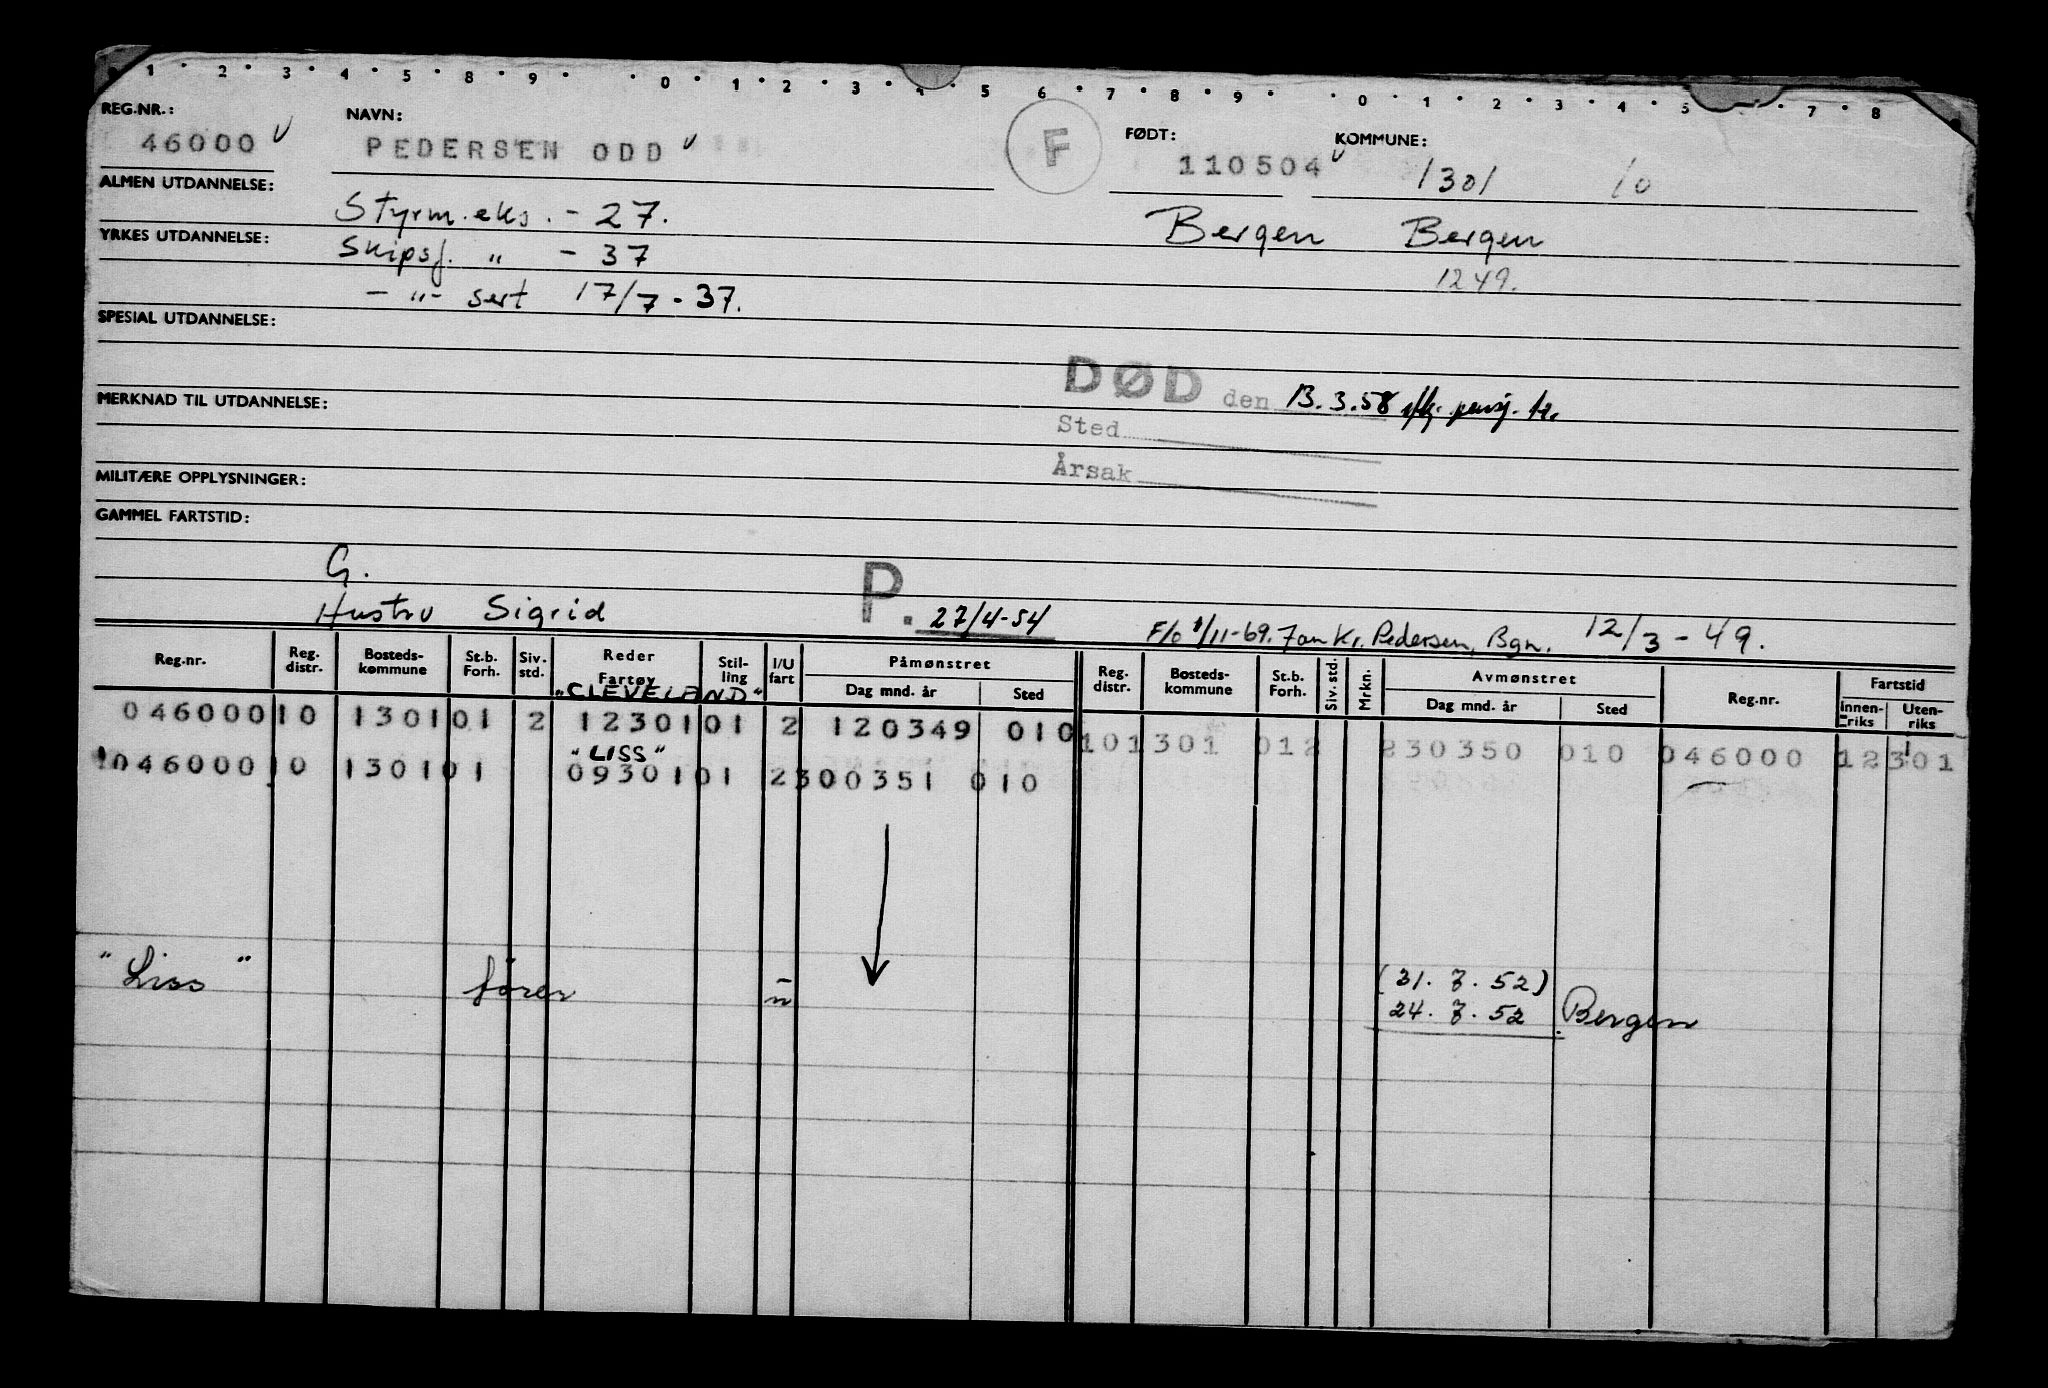 1 · 2 · 3 · 4 · 5 · 8 · 9 · · 0 · 1 · 2 · 3 · 4 · 5 6 · 7 · 8 · 9 · · 0 · 1 · 2 · 3 · 4 · 5 7 · 8
REG.NR.: NAVN: FØDT: KOMMUNE:
46000 PEDERSEN ODD F 110504 1301 10
ALMEN UTDANNELSE: Styrm.eks. - 27. Bergen Bergen
YRKES UTDANNELSE: Skipsf. " - 37 1249.
- " - sert 17/7 - 37.
SPESIAL UTDANNELSE:
DØD den 13.3.58
MERKNAD TIL UTDANNELSE:
Sted
Årsak
MILITÆRE OPPLYSNINGER:
GAMMEL FARTSTID:
G.
Hustru Sigrid P. 27/4-54 F/o 1/11-69. Jan Kr. Pedersen, Bgn. 12/3 - 49.
Reg.nr. Reg. distr. Bosteds- kommune St.b. Forh. Siv. std. Reder Fartøy Stil- ling I/U fart Påmønstret Dag mnd. år Sted Reg. distr. Bosteds- kommune St.b. Forh. Siv. std. Mrkn. Avmønstret Dag mnd. år Sted Reg.nr. Fartstid Innen- riks Uten- riks
"CLEVELAND"
046000 10 1301 01 2 12301 01 2 120349 010 10 1301 012 230350 010 046000 12301
"LISS"
046000 10 1301 01 09301 01 2 300351 010
"Liss" fører u (21.7.52)
24.7.52 Bergen